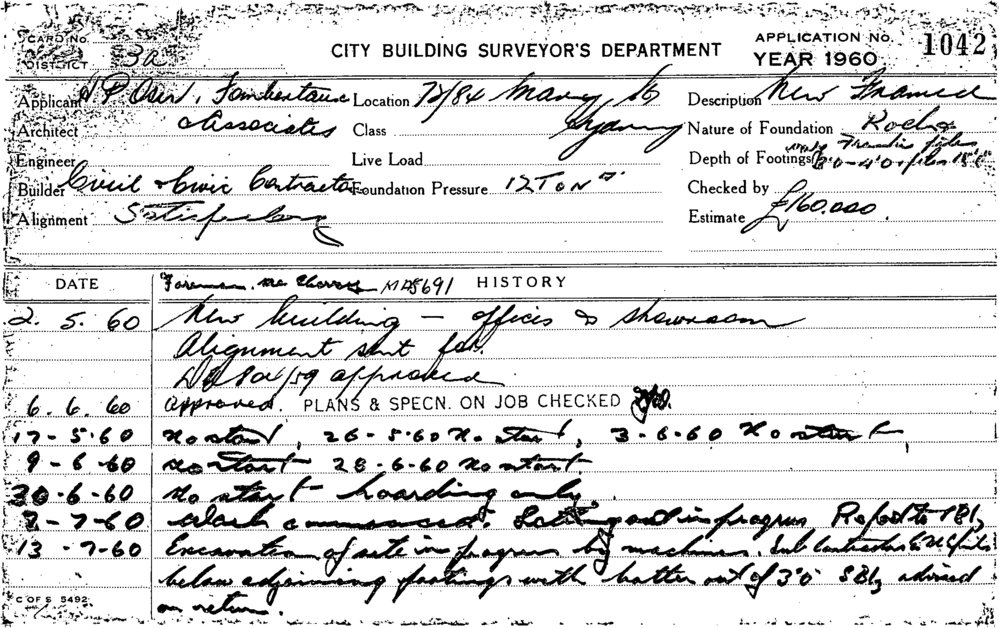 CARD No.
DISTRICT 3a
CITY BUILDING SURVEYOR'S DEPARTMENT
APPLICATION No. 1042
YEAR 1960
Applicant
& Associates
Location 72/84 Mary St
Sydney
Description New Framed
Architect
Class
Nature of Foundation Rock &
Engineer
Live Load
Depth of Footings
Builder Civil & Civic Contractors
Foundation Pressure 12 TON
Checked by
Alignment Satisfactory
Estimate £160,000.
DATE
HISTORY
Foreman. Mr M 25691
2. 5. 60 New building – offices & showroom
Alignment sent for.
approved
6. 6. 60 Approved. PLANS & SPECN. ON JOB CHECKED
17-5-60 No start, 26-5-60 No start, 3-6-60 No start,
9-6-60 No start 28-6-60 No start.
30-6-60 No start hoarding only.
8-7-60 Work commenced. Setting out in progress
13-7-60 Excavation of site in progress by machines.
below adjoining footings with batter out of 3'0" SBI, advised
on return.
C OF S 5492